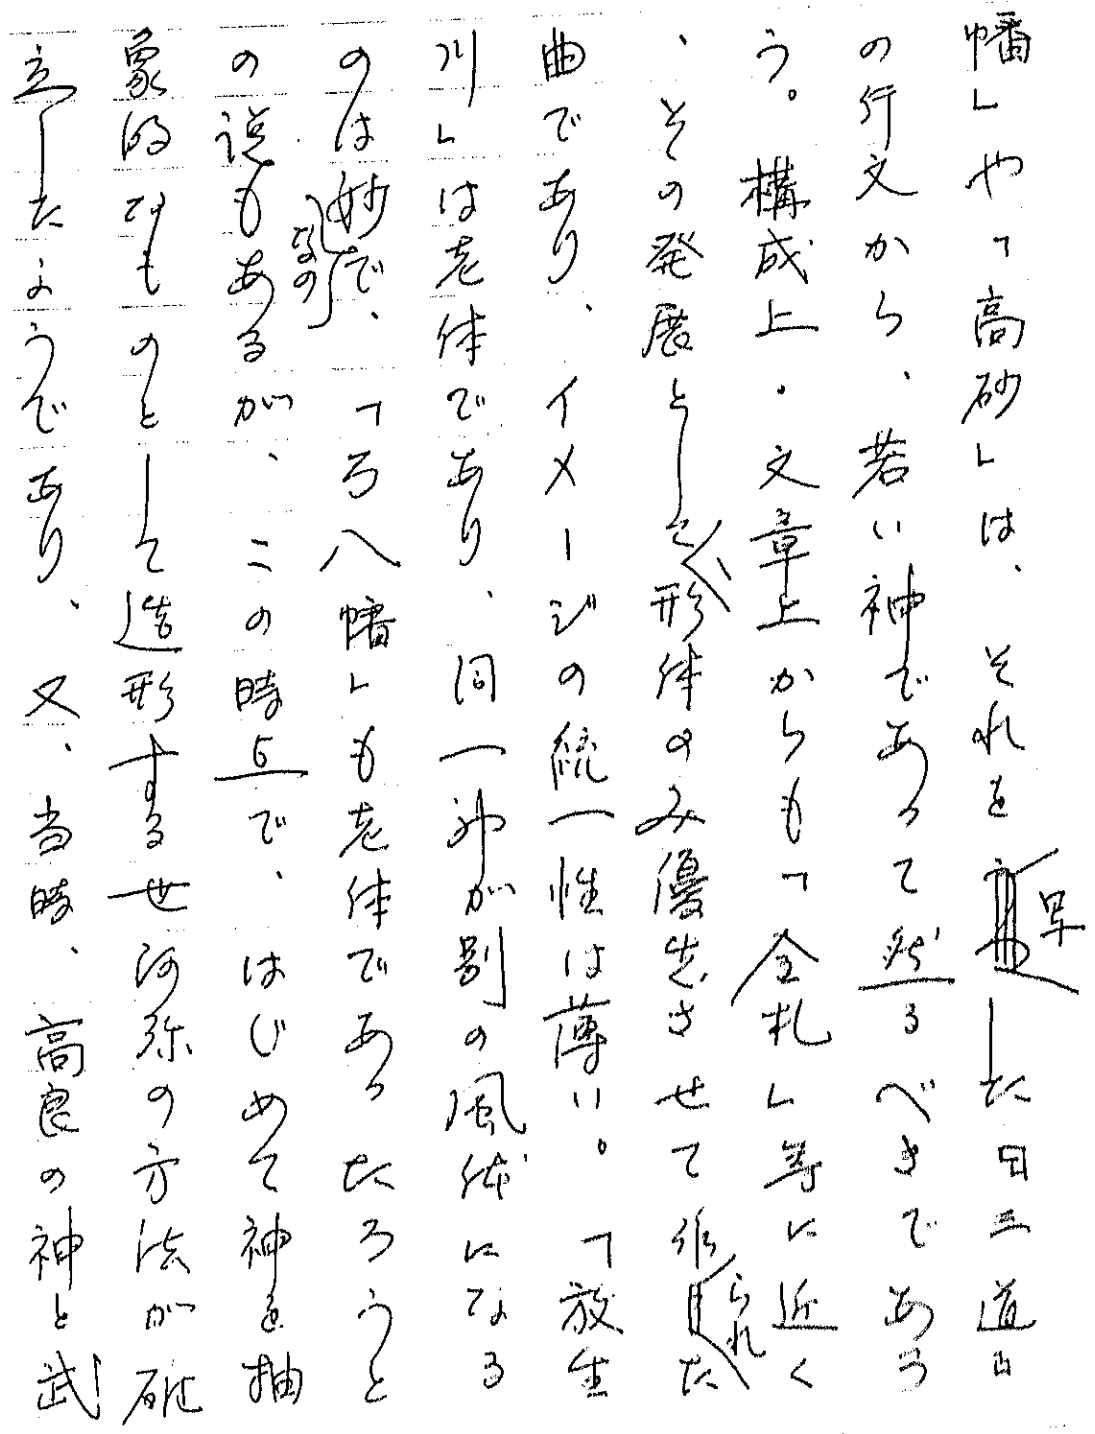 幡」や「高砂」は、それを写した〝三道〟
の行文から、若い神であって然るべきであろ
う。構成上・文章上からも「金札」等に近く
、その発展として、形体のみ優先させて作られた
曲であり、イメージの統一性は薄い。「放生
川」は老体であり、同一神が別の風体になる
のは妙なので、「弓八幡」も老体であったろうと
の説もあるが、この時点で、はじめて神を抽
象的なものとして造形する世阿弥の方法が確
立したようであり、又、当時、高良の神と武